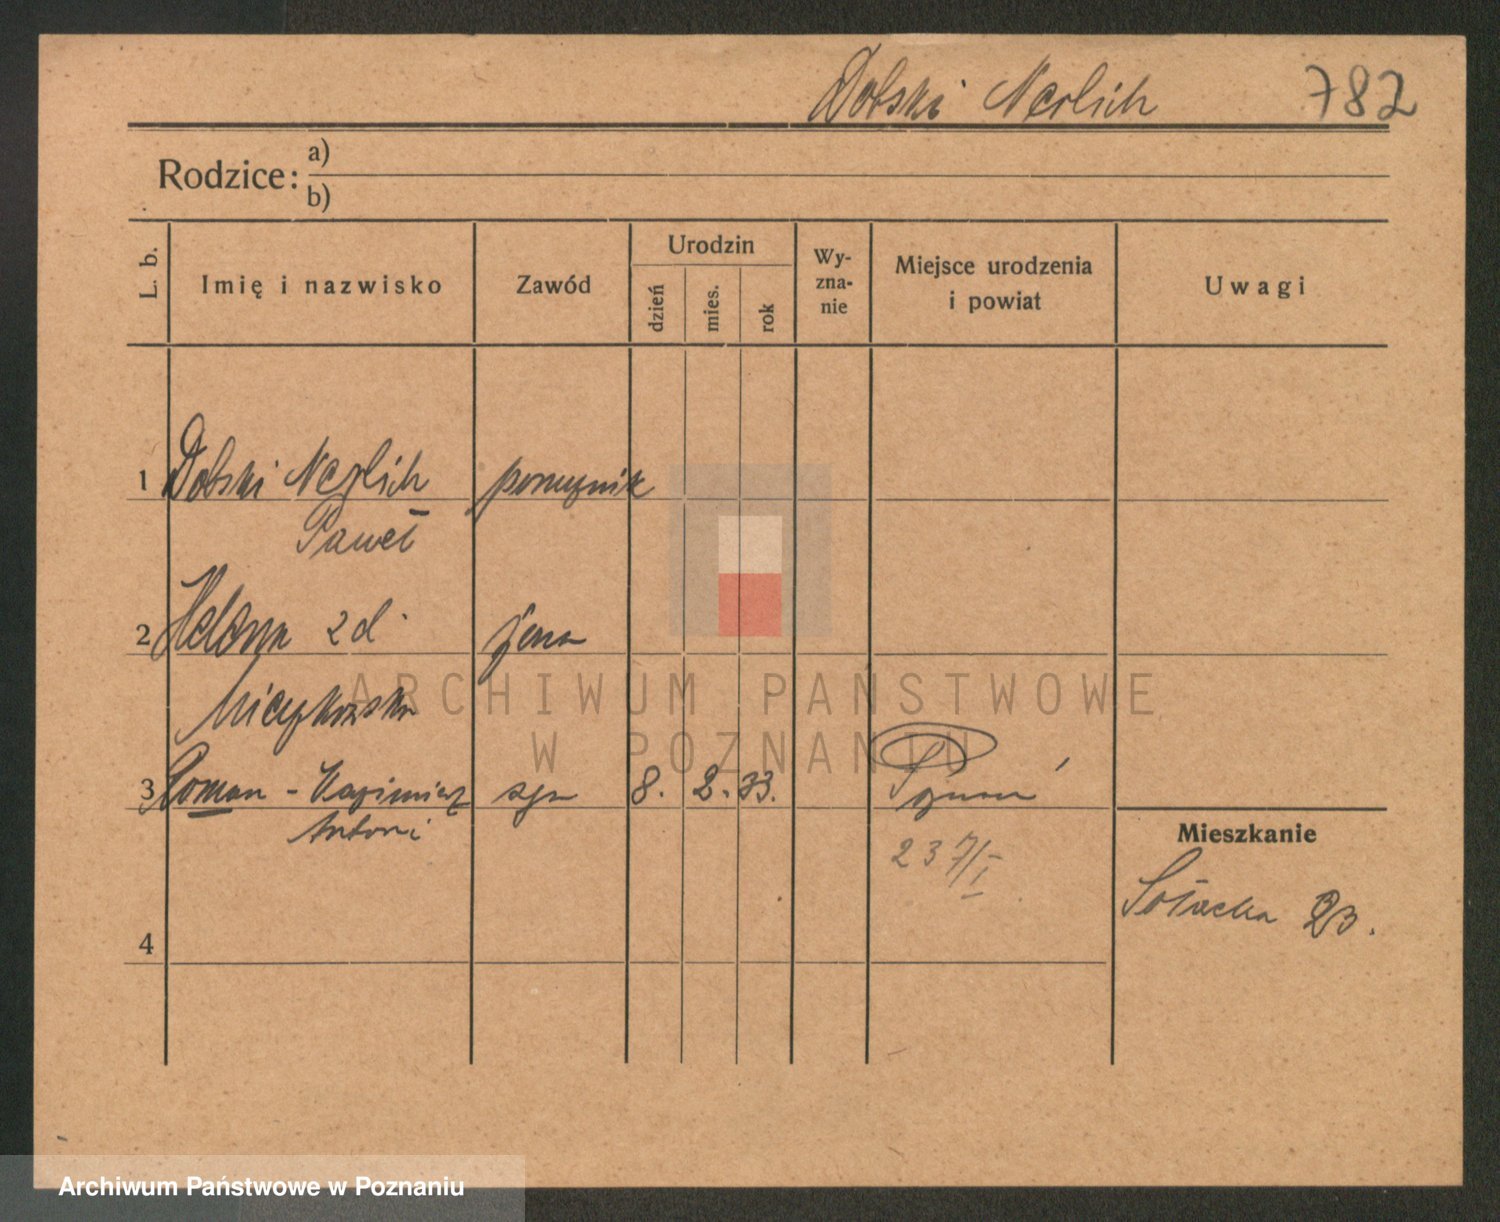 Dolski Nerlich 782
Rodzice: a)
b)
L. b. Imię i nazwisko Zawód Urodzin dzień mies. rok Wy-zna-nie Miejsce urodzenia i powiat Uwagi
1 Dolski Nerlich
Paweł
2 Helena zd. żona
3 Roman - Kazimierz syn 8. 2. 33. Poznań
Antoni
237/I
Mieszkanie
Sołacka 23.
4
ARCHIWUM PAŃSTWOWE
W POZNANIU
Archiwum Państwowe w Poznaniu